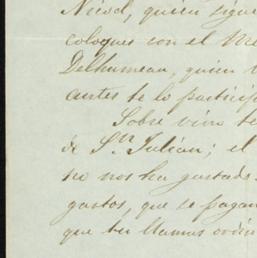 Nicod, quien sigue
coloques con el Me
Delhumeau, quien t
antes te lo particip
Sobre vino te
de Sn. Julian; el
no nos ha gustado
gastos, que se pagan
que tu llamas ordin